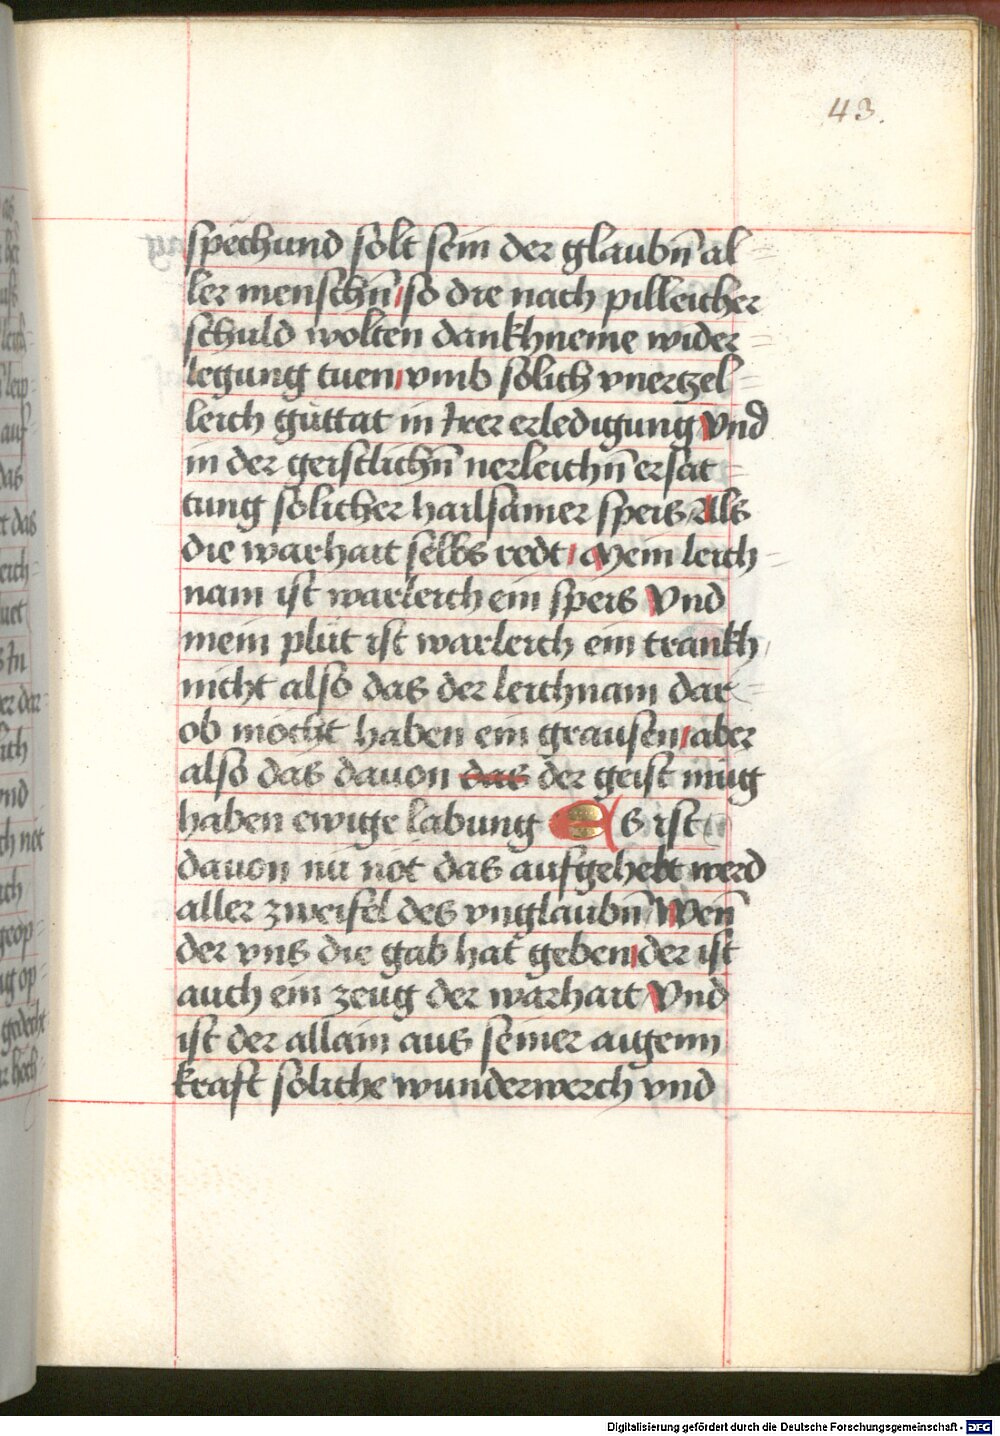 43.
spẽchund solt sein der glaubn̄ al=
ler menschn̄ / so die nach pilleicher
schuld wolten dankhneme wider=
legung tuen / vmb solich vnertzel=
leich gůttat in Irer erledigung Vnd
in der geistlichn̄ nerleichn̄ ersat=
tung solicher hailsamer speis Als
die warhait selbs redt / Mein leich=
nam ist warleich ein speis Vnd
mein plůt ist warleich ein trankh
nicht also das der leichnam dar=
ob möcht haben ein grausen / aber
also das dauon das der geist mug
haben ewige labung Es ist
dauon nu not das aufgehebt werd
aller zweifel des vnglaubn̄ Wen̄
der vns die gab hat geben / der ist
auch ein zeug der warhait Vnd
ist der allain aus seiner aigenn
kraft soliche wunderwerch vnd
Digitalisierung gefördert durch die Deutsche Forschungsgemeinschaft - DFG